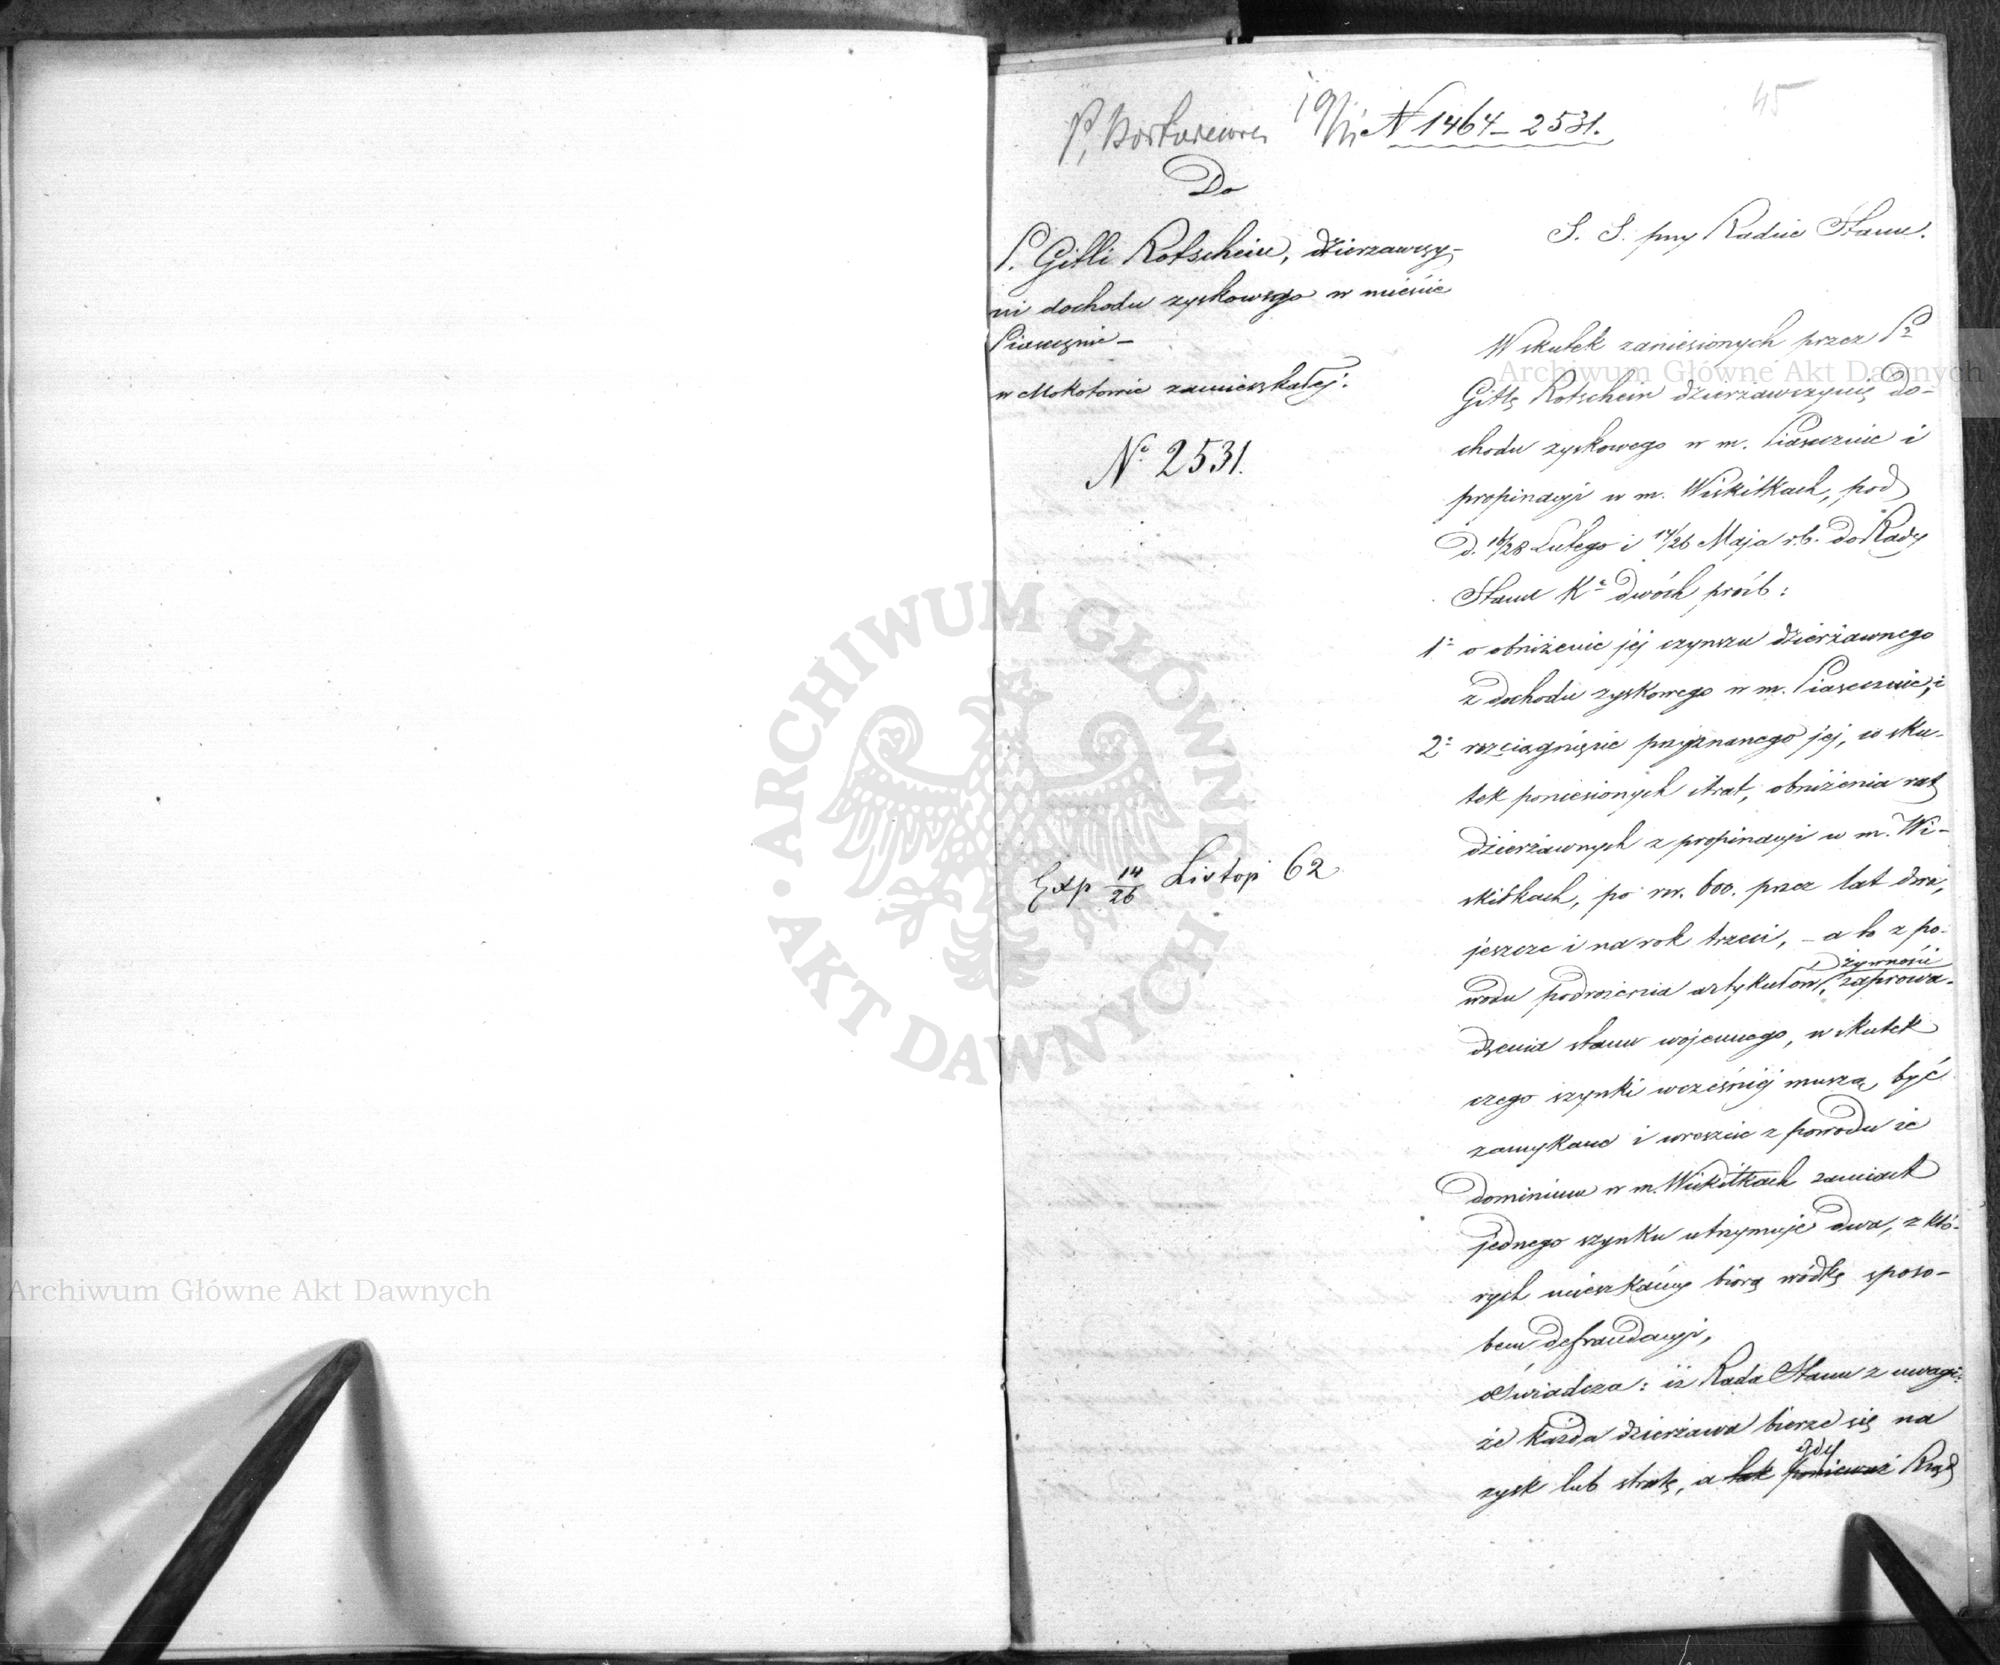 45
P. Bartoszewicz 19/XI N 1464 – 2531.
Do
P. Gitli Rotschein, dzierzawczy-
ni dochodu zyskowego w mieście
Piasecznie –
w Mokotowie zamieszkałej.
N° 2531.
Exp 14/26 Listop 62
S. S. przy Radzie Stanu.
W skutek zaniesionych przez Pą
Gitlę Rotschein dzierżawczynię do-
chodu zyskowego w m. Piasecznie i
propinacyi w m. Wiskitkach, pod
d. 16/28 Lutego i 14/26 Maja r.b. do Rady
Stanu Kr. dwóch próśb:
1° o obniżenie jej czynszu dzierżawnego
z dochodu zyskowego w m. Piasecznie, i
2° rozciągnięcie przyznanego jej, w sku-
tek poniesionych strat, obniżenia rat
dzierżawnych z propinacyi w m. Wi-
skitkach, po rsr. 600. przez lat dwa,
jeszcze i na rok trzeci, – a to z po-
wodu podrożenia artykułów żywności, zaprowa-
dzenia stanu wojennego, w skutek
czego szynki wcześniej muszą być
zamykane i wreszcie z powodu że
dominium w m. Wiskitkach zamiast
jednego szynku utrzymuje dwa, z któ-
rych mieszkańcy biorą wódkę sposo-
bem defraudacyi,
oświadcza: iż Rada Stanu z uwagi:
że każda dzierżawa bierze się na
zysk lub stratę, a tak ponieważ gdy Rząd
Archiwum Główne Akt Dawnych
Archiwum Główne Akt Dawnych
ARCHIWUM GŁÓWNE · AKT DAWNYCH ·